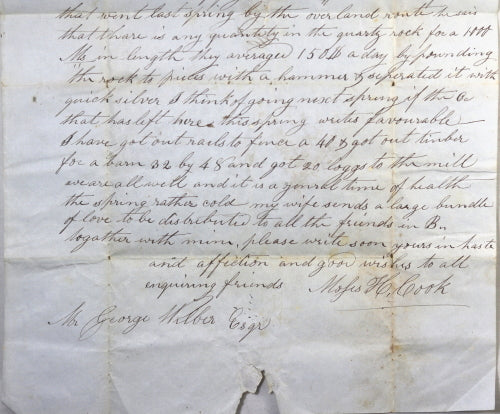 that went last spring by the overland route he sais
that thare is any quantity in the quartz rock for a 1000
Ms in length they averaged 150 $ a day by pounding
the rock to pieces with a hammer & seperated it with
quick silver I think of going next spring if the Co
that has left here this spring writes favourable
I have got out rails to fince a 40 & got out timber
for a barn 32 by 48 and got 20 loggs to the mill
we are all well and it is a genral time of health
the spring rather cold my wife sends a large bundle
of love to be distributed to all the friends in B.
togather with mine, please write soon yours in haste
and affiction and good wishes to all
enquiring friends Moses H. Cook
Mr George Wilber Esqr